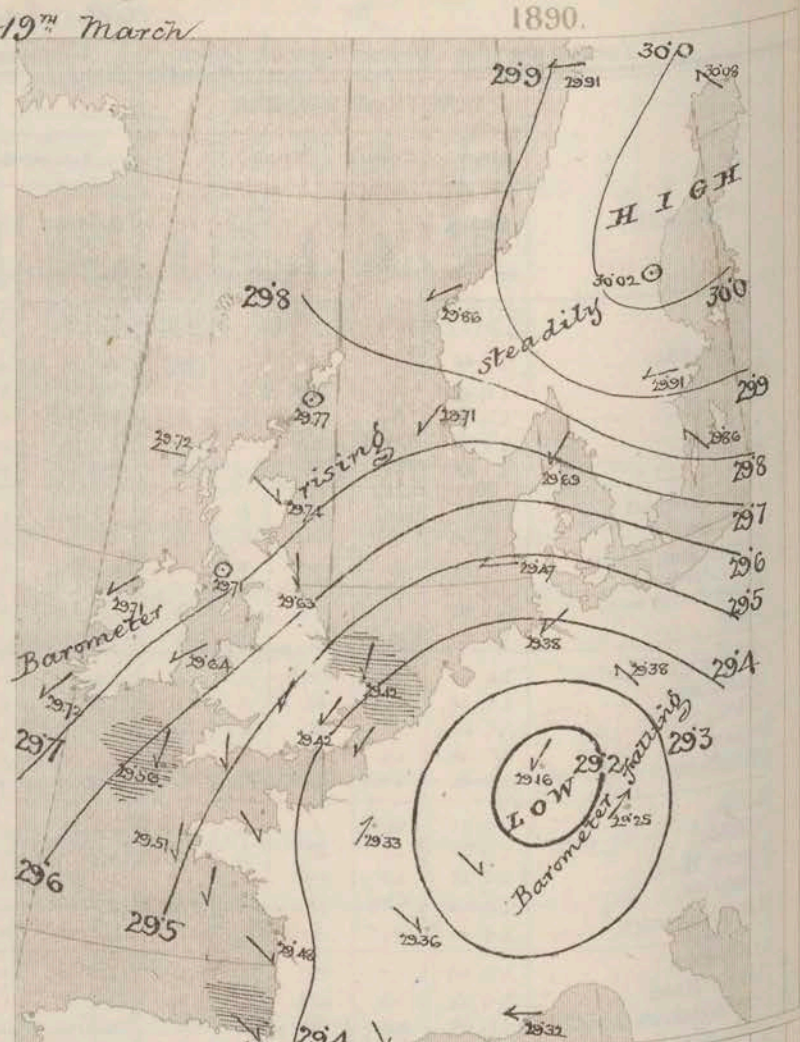 19TH March
1890.
29.9
29.91
30.0
30.08
HIGH
30.02
30.0
29.8
29.86
steadily
29.91
29.9
29.77
29.71
29.86
29.8
29.72
rising
29.74
29.69
29.7
29.71
29.6
29.71
29.63
29.47
29.5
Barometer
29.64
29.38
29.4
29.38
29.42
29.7
29.42
29.3
29.2
29.16
LOW
Barometer Falling
29.25
29.51
29.33
29.6
29.5
29.36
29.48
29.32
29.4